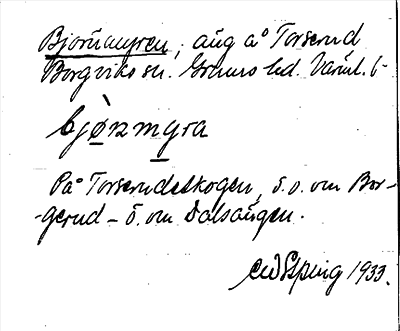 Björnmyren, äng å Torserud
Borgviks sn. Grums hd. Värml. l.
bjø̀nmyra
På Torserudskogen, s.o. om Bor-
-gerud – ö. om Dalsängen.
1933.